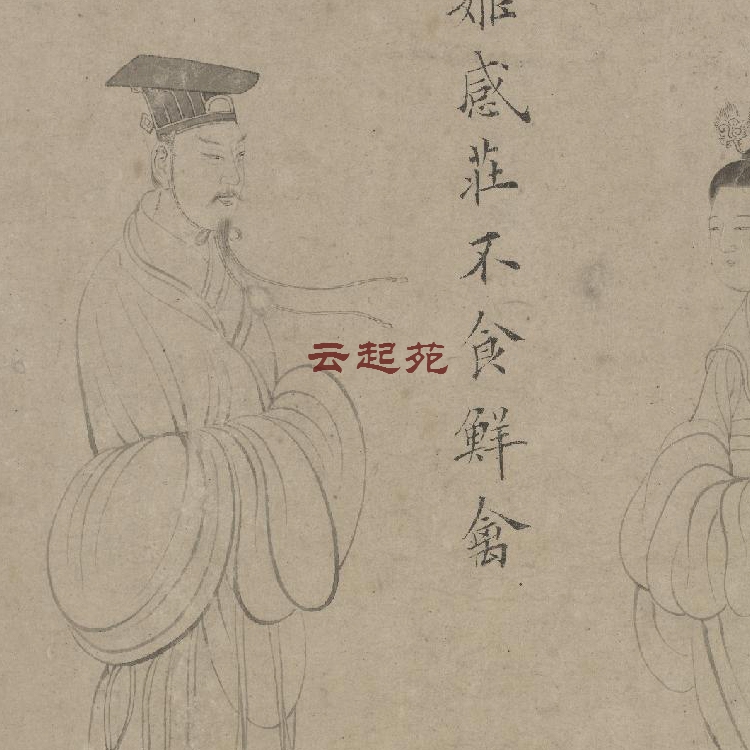 姬感莊不食鮮禽
云起苑